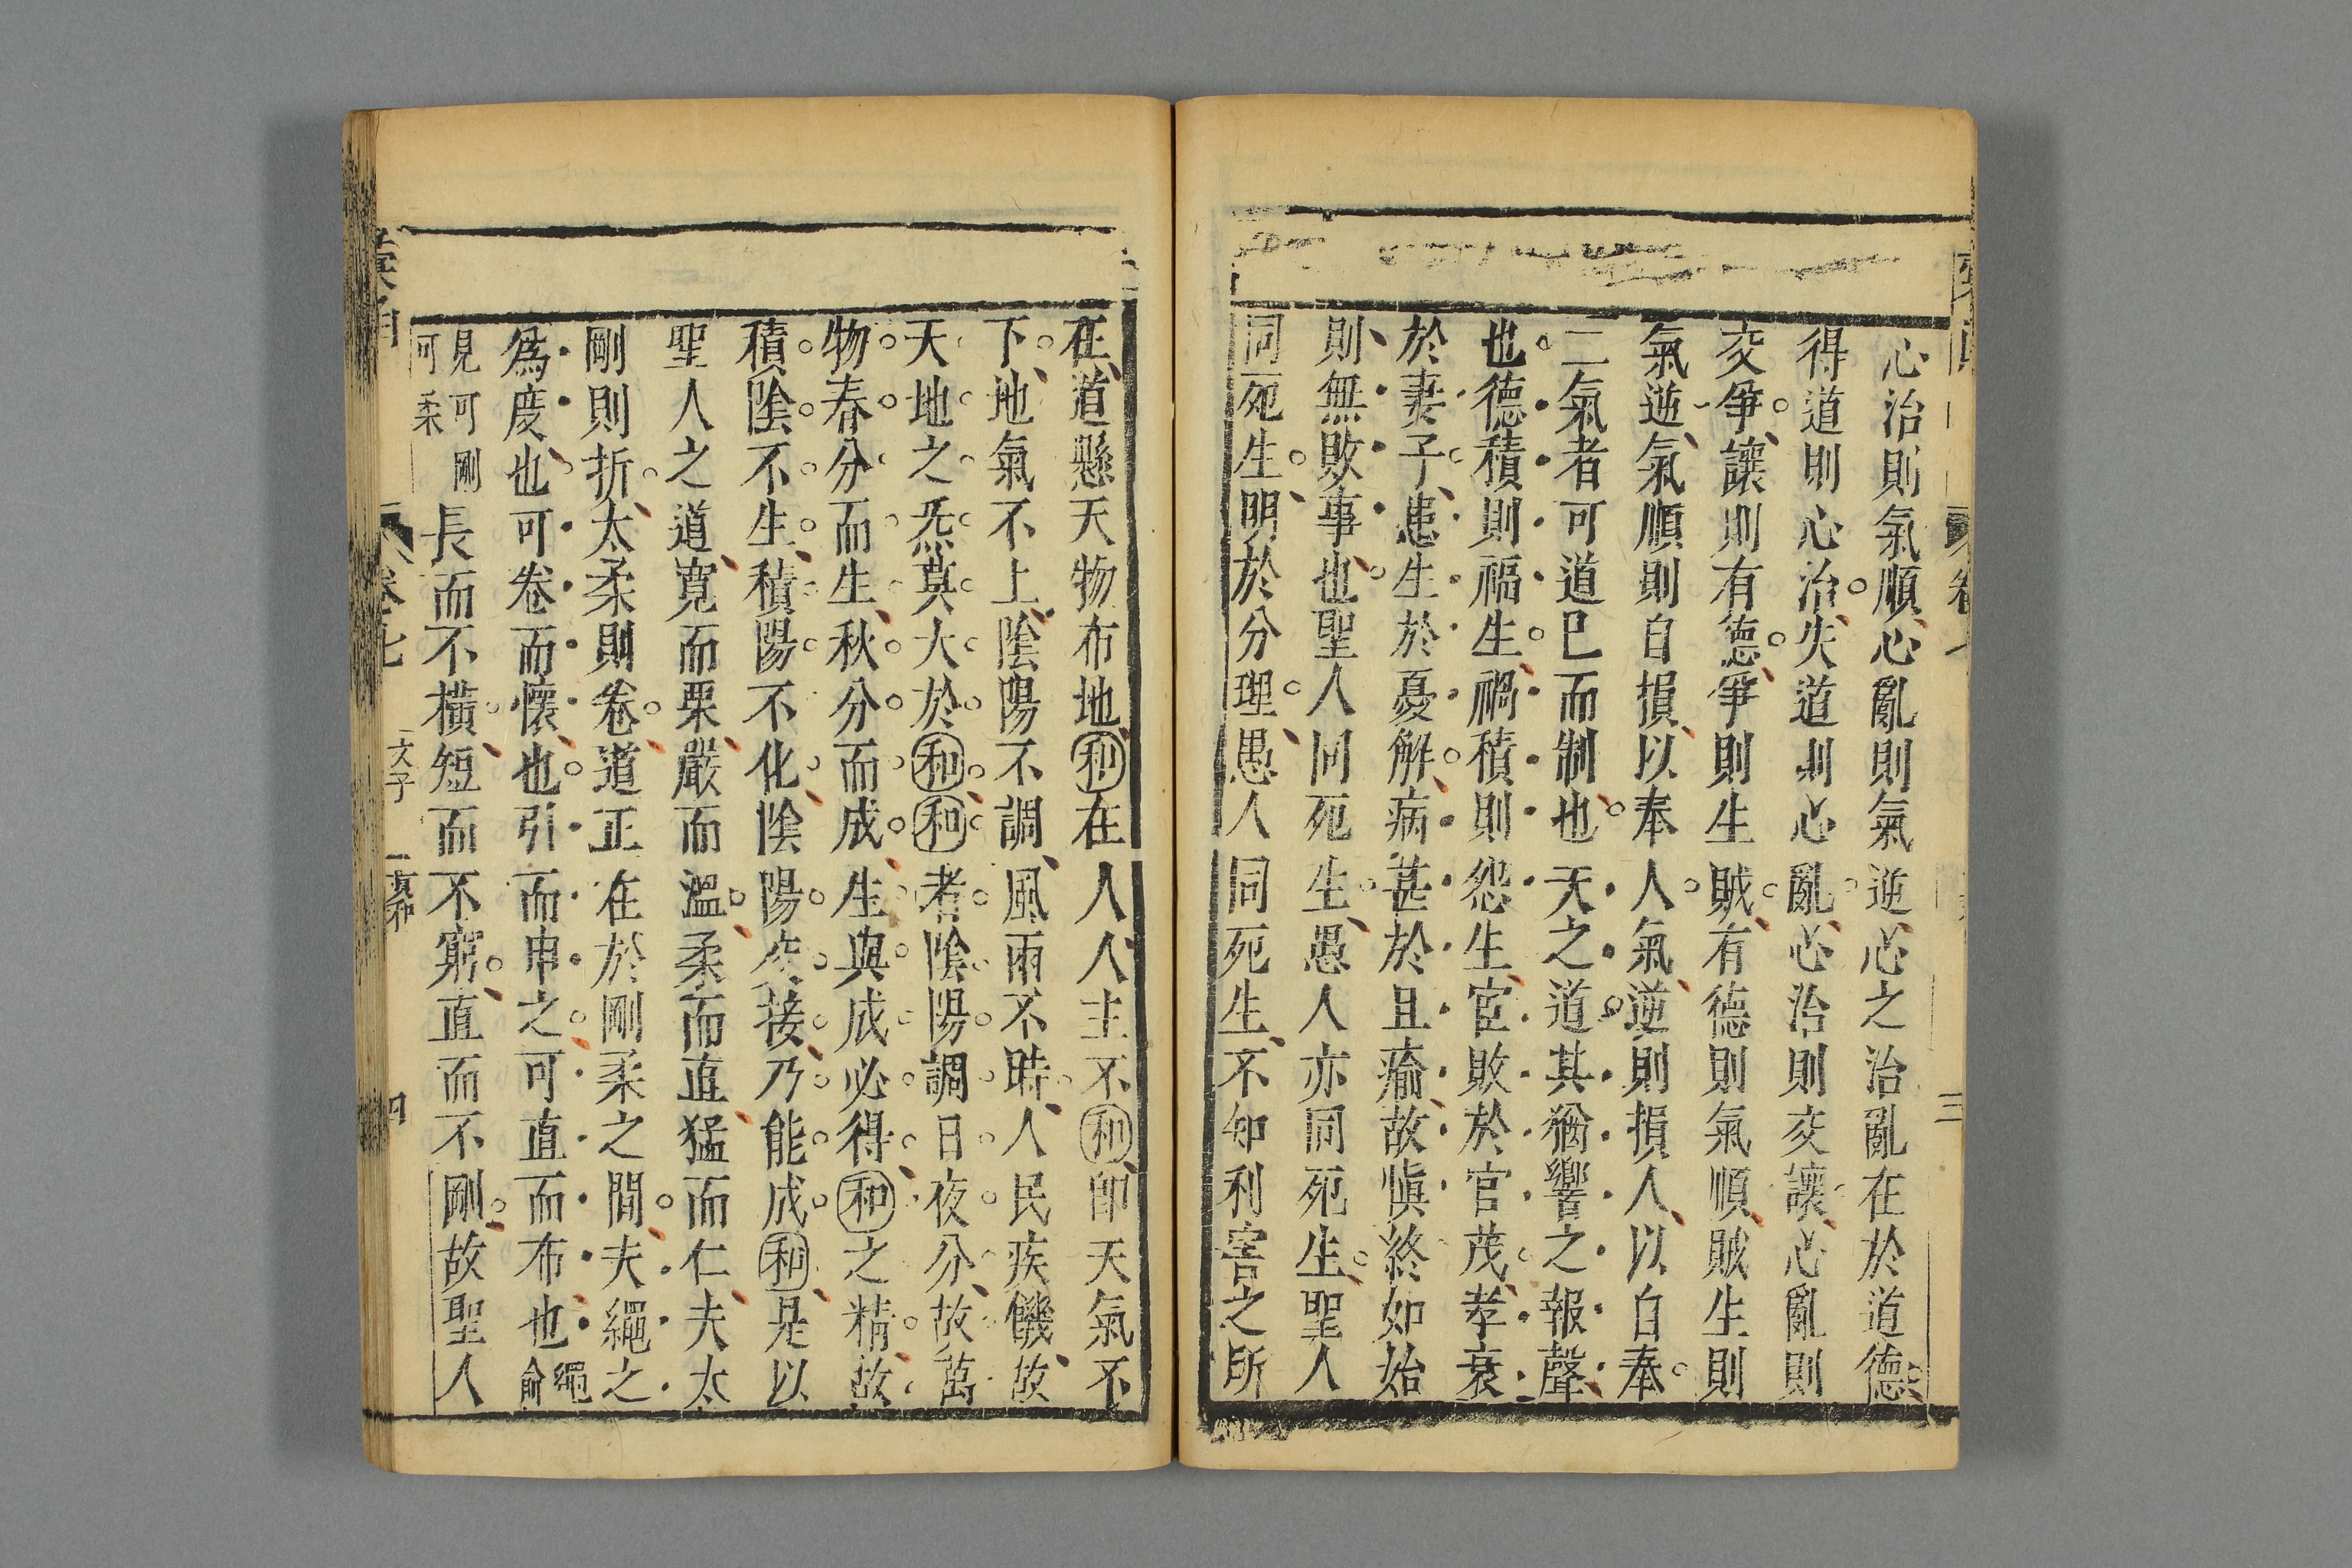 心治則氣順心亂則氣逆心之治亂在於道德
得道則心治失道則心亂心治則交讓心亂則
交爭讓則有德爭則生賊有德則氣順賊生則
氣逆氣順則自損以奉人氣逆則損人以自奉
二氣者可道已而制也天之道其猶響之報聲
也德積則福生禍積則怨生宦敗於官茂孝衰
於妻子患生於憂解病甚於且瘉故愼終如始
則無敗事也聖人同死生愚人亦同死生聖人
同死生明於分理愚人同死生不知利害之所
在道懸天物布地和在人人主不和卽天氣不
下地氣不上陰陽不調風雨不時人民疾饑故
天地之炁莫大於和和者陰陽調日夜分故萬
物春分而生秋分而成生與成必得和之精故
積陰不生積陽不化陰陽交接乃能成和是以
聖人之道寬而栗嚴而溫柔而直猛而仁夫太
剛則折太柔則卷道正在於剛柔之間夫繩之
爲度也可卷而懷也引而申之可直而布也繩喻
見可剛可柔長而不橫短而不窮直而不剛故聖人
卷七
文子
四
三